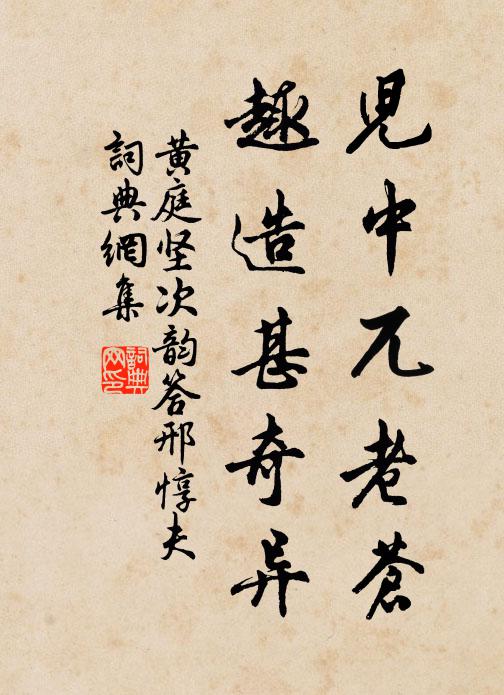 兒中兀老蒼
趣造甚奇异
黄庭坚次韵答邢惇夫
詞典網集
詞典网印